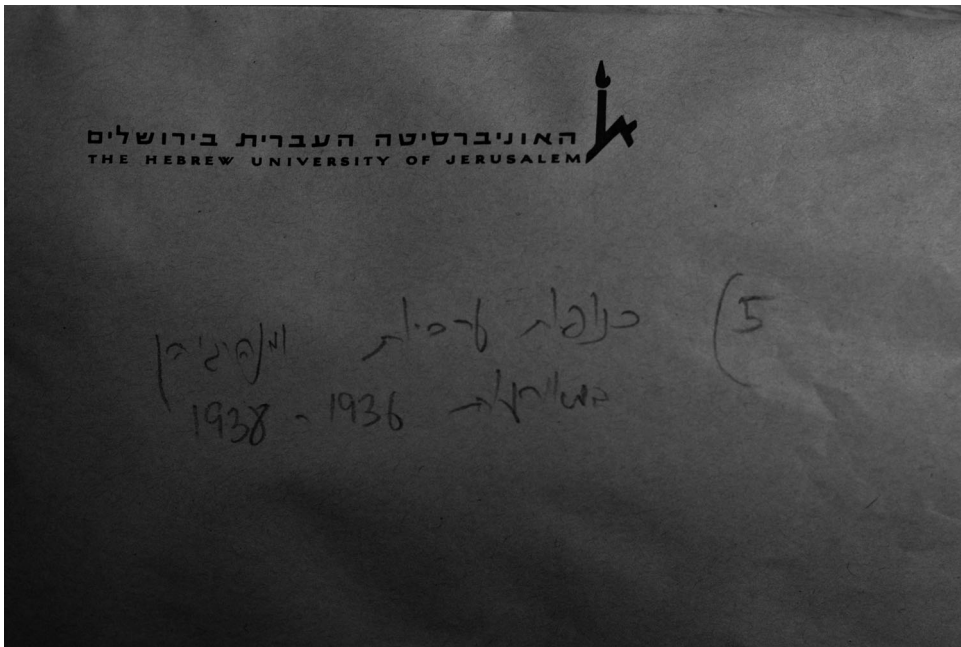 האוניברסיטה העברית בירושלים
THE HEBREW UNIVERSITY OF JERUSALEM
5) כנופיות ערביות ומנהיגיהן
במאורעות 1936 - 1938